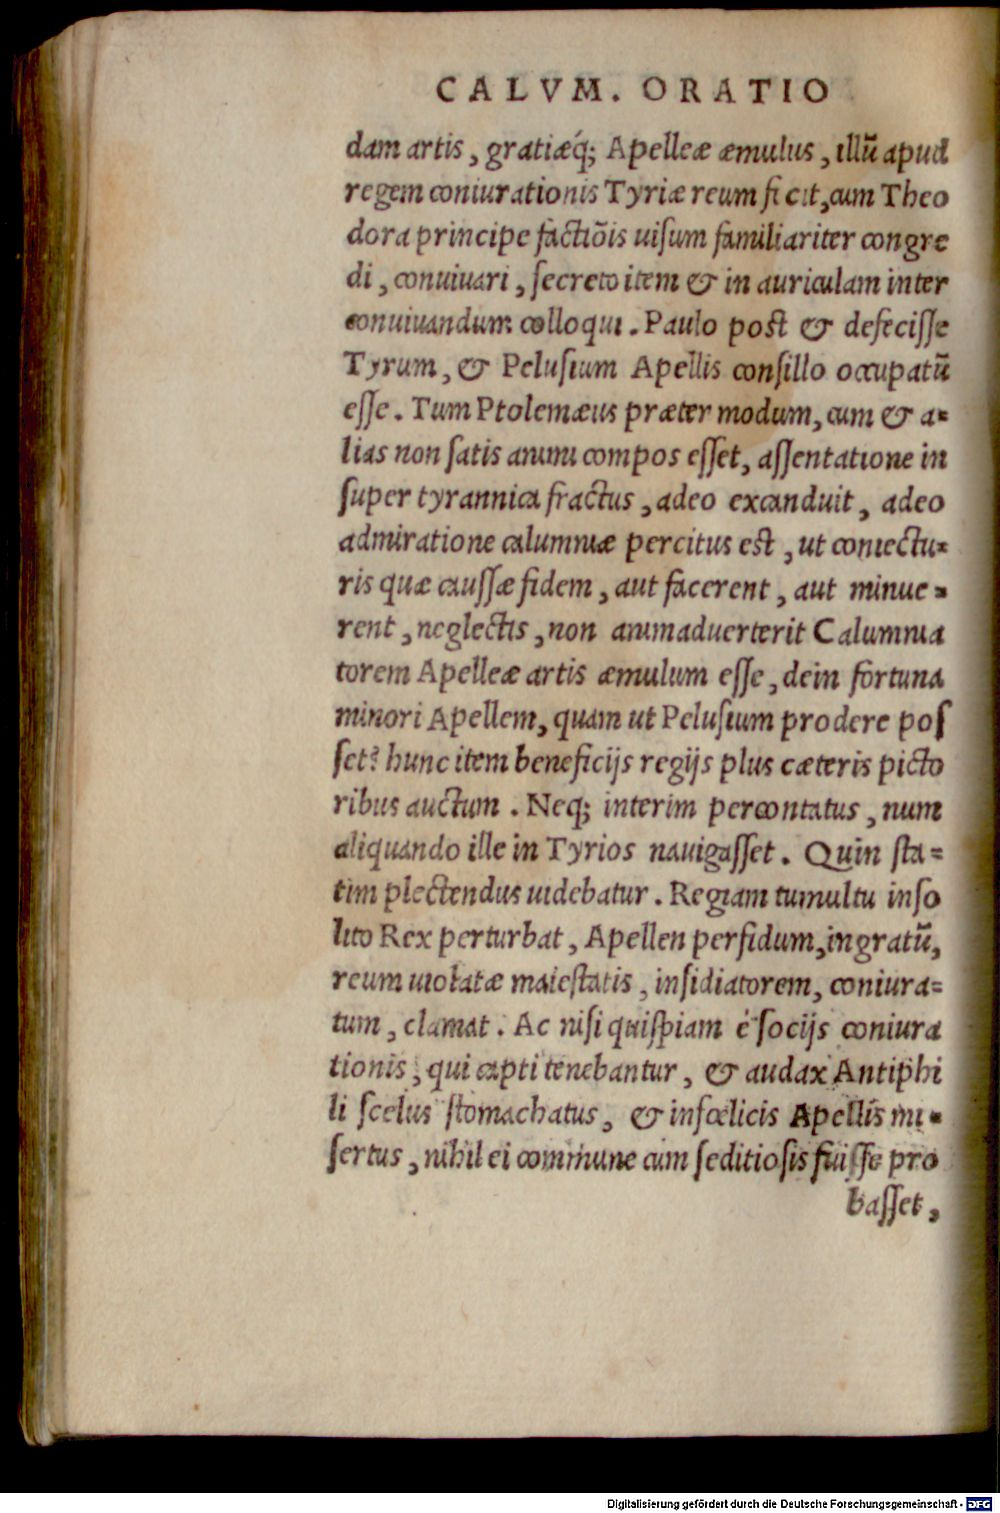 CALVM. ORATIO
dam artis, gratiæq́; Apelleæ æmulus, illũ apud
regem coniurationis Tyriæ reum fecit, cum Theo
dora principe factiõis uisum familiariter congre
di, conuiuari, secreto item & in auriculam inter
conuiuandum colloqui. Paulo post & defecisse
Tyrum, & Pelusium Apellis consilio occupatũ
esse. Tum Ptolemæus præter modum, cum & a-
lias non satis animi compos esset, assentatione in
super tyrannica fractus, adeo excanduit, adeo
admiratione calumniæ percitus est, ut coniectu-
ris quæ caussæ fidem, aut facerent, aut minue-
rent, neglectis, non animaduerterit Calumnia
torem Apelleæ artis æmulum esse, dein fortuna
minori Apellem, quam ut Pelusium prodere pos
set? hunc item beneficijs regijs plus cæteris picto
ribus auctum. Neq; interim percontatus, num
aliquando ille in Tyrios nauigasset. Quin sta-
tim plectendus uidebatur. Regiam tumultu inso
lito Rex perturbat, Apellen perfidum, ingratũ,
reum uiolatæ maiestatis, insidiatorem, coniura-
tum, clamat. Ac nisi quispiam è socijs coniura
tionis, qui capti tenebantur, & audax Antiphi
li scelus stomachatus, & infœlicis Apellis mi-
sertus, nihil ei commune cum seditiosis fuisse pro
basset,
Digitalisierung gefördert durch die Deutsche Forschungsgemeinschaft - DFG